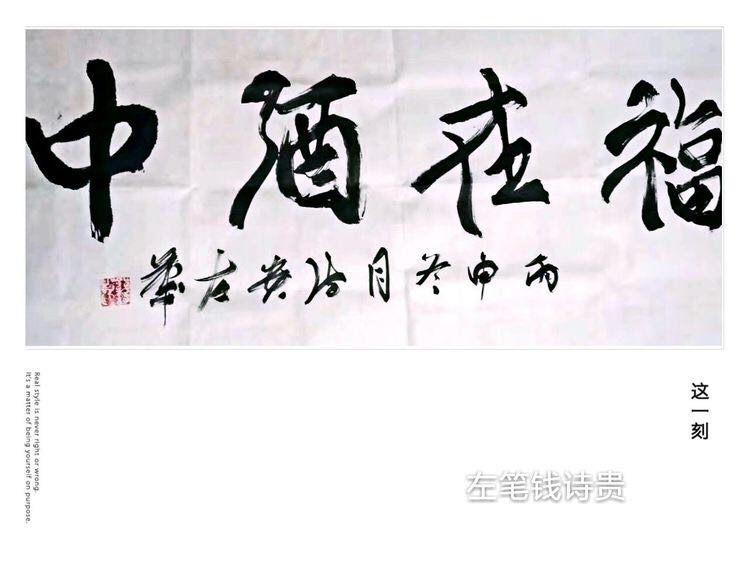 福在酒中
丙申冬月诗贵左笔
这一刻
左笔钱诗贵
Real style is never right or wrong.
It's a matter of being yourself on purpose.